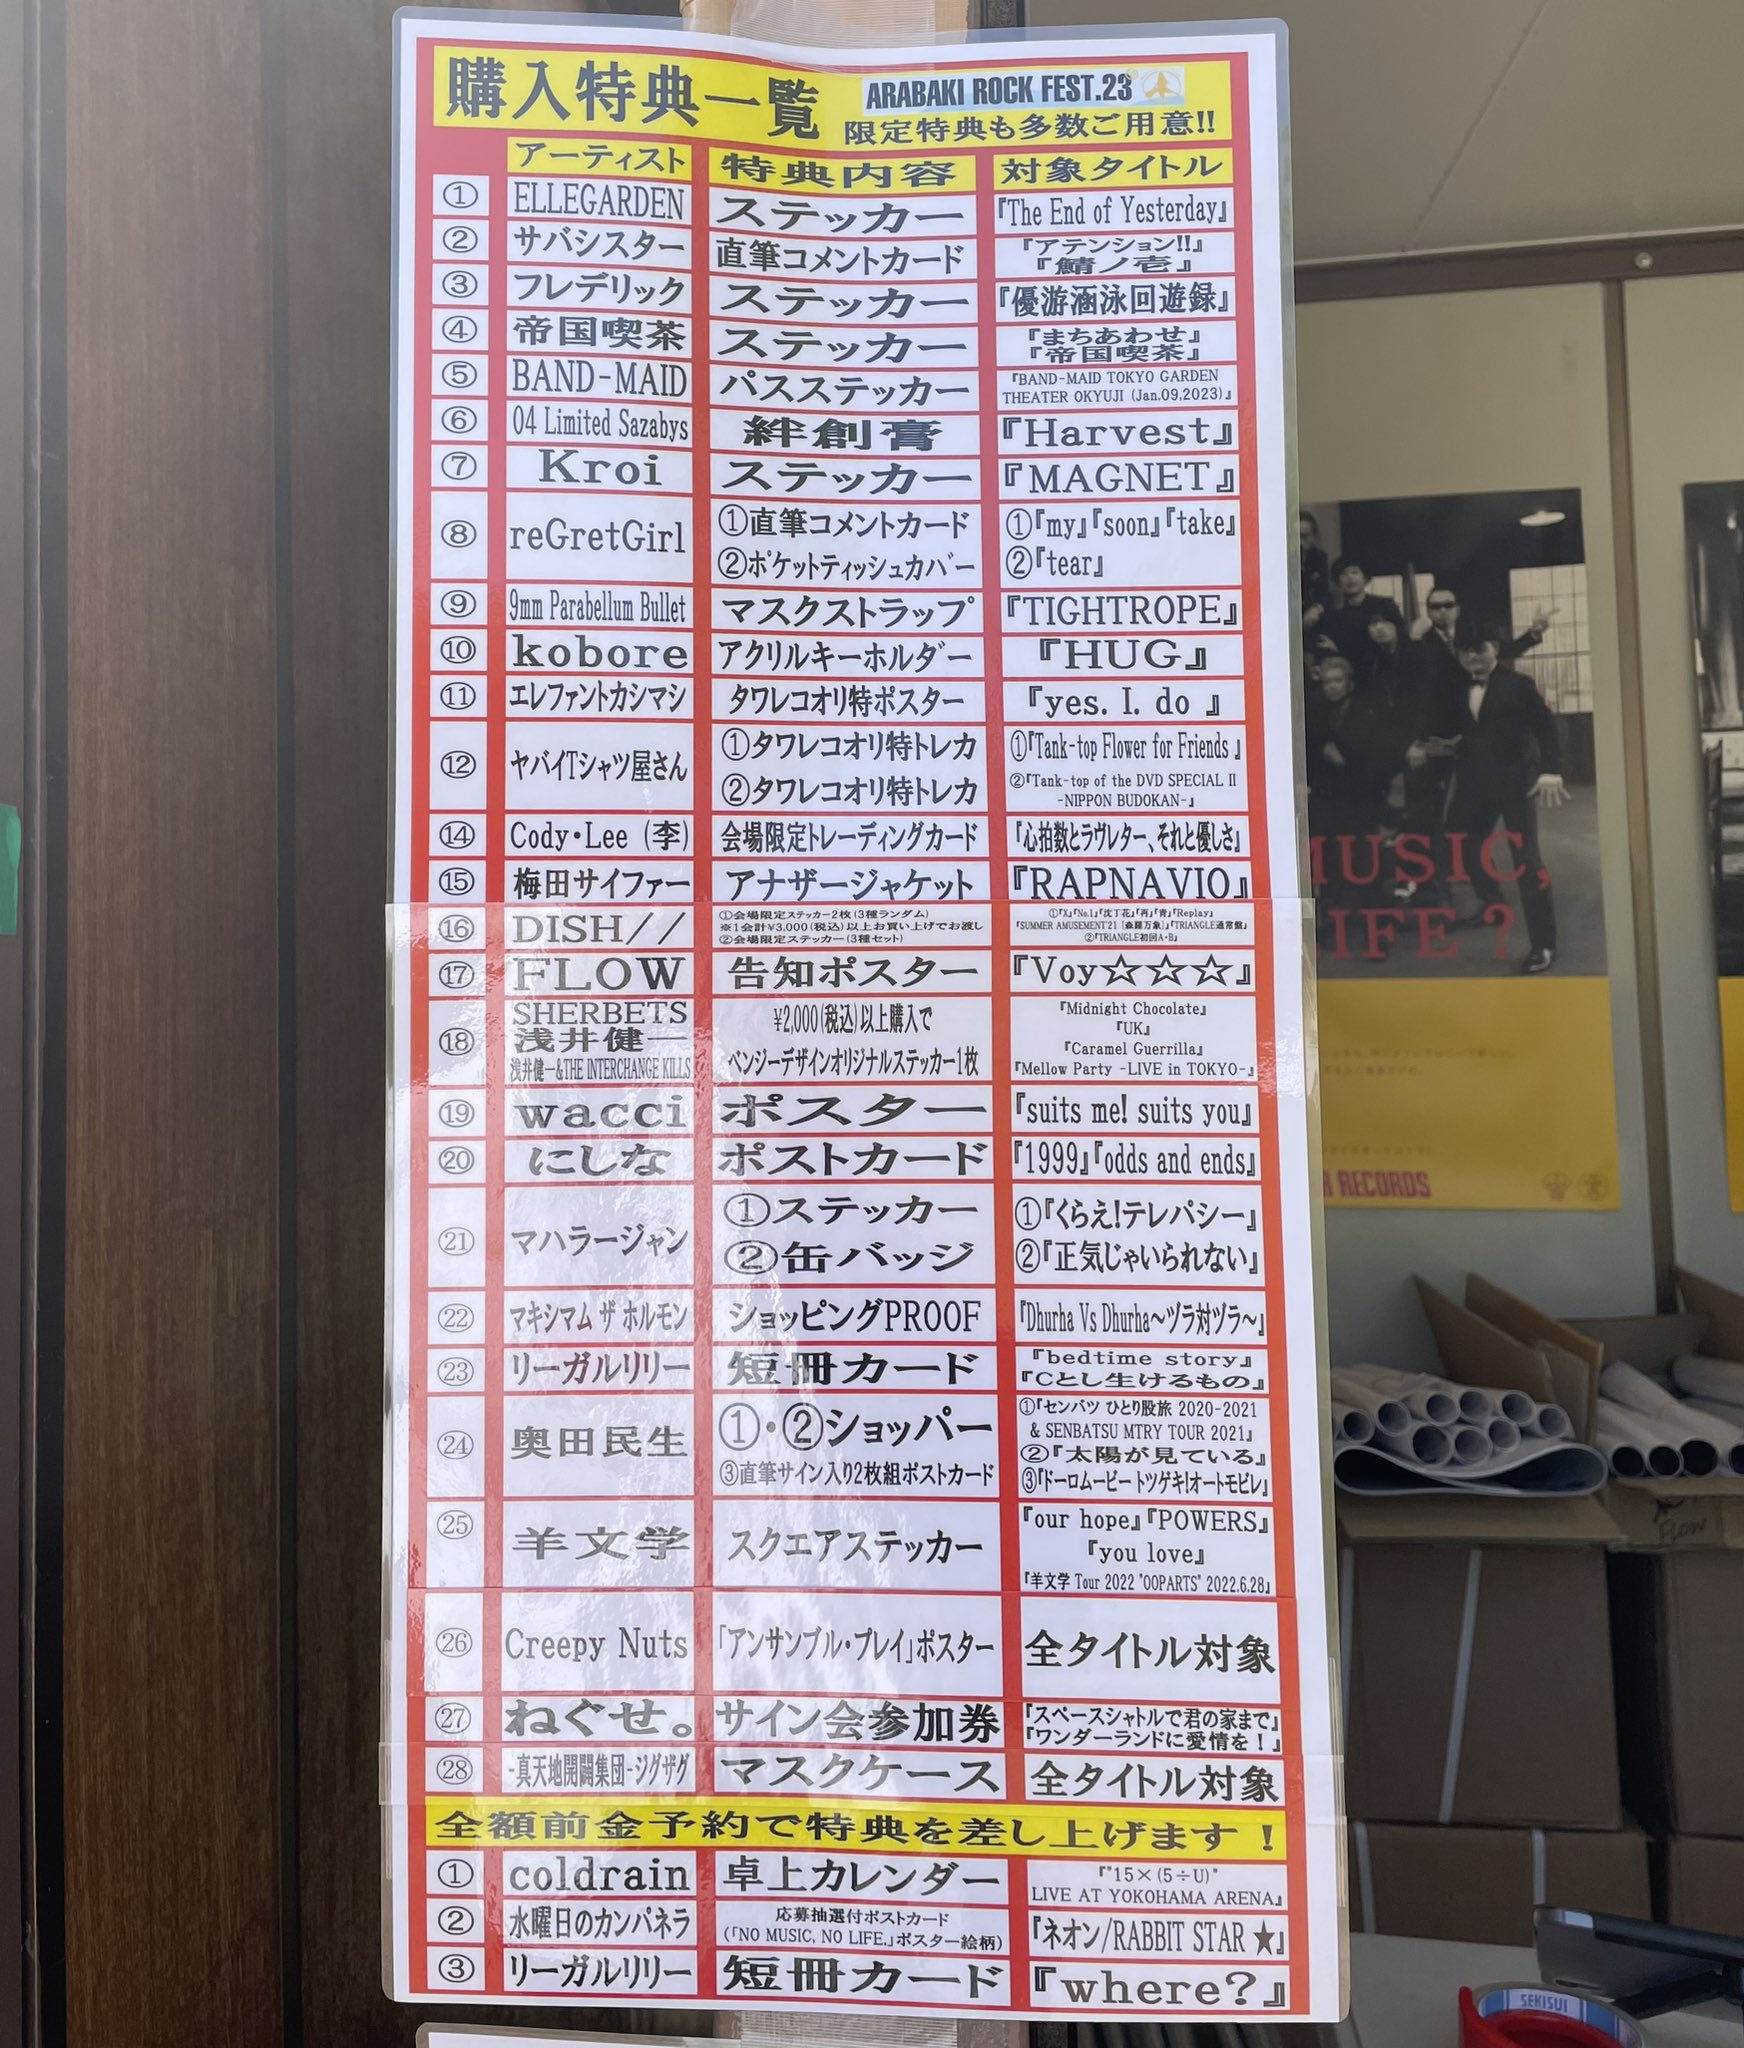 購入特典一覧
ARABAKI ROCK FEST.23
限定特典も多数ご用意!!
アーティスト 特典内容 対象タイトル
① ELLEGARDEN ステッカー 『The End of Yesterday』
② サバシスター 直筆コメントカード 『アテンション!!』
『鯖ノ壱』
③ フレデリック ステッカー 『優游涵泳回遊録』
④ 帝国喫茶 ステッカー 『まちあわせ』
『帝国喫茶』
⑤ BAND-MAID パスステッカー 『BAND-MAID TOKYO GARDEN
THEATER OKYUJI (Jan.09,2023)』
⑥ 04 Limited Sazabys 絆創膏 『Harvest』
⑦ Kroi ステッカー 『MAGNET』
⑧ reGretGirl ①直筆コメントカード ①『my』『soon』『take』
②ポケットティッシュカバー ②『tear』
⑨ 9mm Parabellum Bullet マスクストラップ 『TIGHTROPE』
⑩ kobore アクリルキーホルダー 『HUG』
⑪ エレファントカシマシ タワレコオリ特ポスター 『yes. I. do 』
⑫ ヤバイTシャツ屋さん ①タワレコオリ特トレカ ①『Tank-top Flower for Friends 』
②タワレコオリ特トレカ ②『Tank-top of the DVD SPECIAL II
-NIPPON BUDOKAN-』
⑭ Cody・Lee (李) 会場限定トレーディングカード 『心拍数とラヴレター、それと優しさ』
⑮ 梅田サイファー アナザージャケット 『RAPNAVIO』
⑯ DISH// ①会場限定ステッカー2枚(3種ランダム) ①『X』『No.1』『沈丁花』『再』『青』『Replay』
※1会計¥3,000(税込)以上お買い上げでお渡し 『SUMMER AMUSEMENT'21 [森羅万象]』『TRIANGLE通常盤』
②会場限定ステッカー(3種セット) ②『TRIANGLE初回A・B』
⑰ FLOW 告知ポスター 『Voy☆☆☆』
⑱ SHERBETS ¥2,000(税込)以上購入で 『Midnight Chocolate』
浅井健一 ベンジーデザインオリジナルステッカー1枚 『UK』
浅井健一&THE INTERCHANGE KILLS 『Caramel Guerrilla』
『Mellow Party -LIVE in TOKYO-』
⑲ wacci ポスター 『suits me! suits you』
⑳ にしな ポストカード 『1999』『odds and ends』
㉑ マハラージャン ①ステッカー ①『くらえ!テレパシー』
②缶バッジ ②『正気じゃいられない』
㉒ マキシマム ザ ホルモン ショッピングPROOF 『Dhurha Vs Dhurha～ヅラ対ヅラ～』
㉓ リーガルリリー 短冊カード 『bedtime story』
『Cとし生けるもの』
㉔ 奥田民生 ①・②ショッパー ①『センバツ ひとり股旅 2020-2021
& SENBATSU MTRY TOUR 2021』
②『太陽が見ている』
③直筆サイン入り2枚組ポストカード ③『ドーロムービー トツゲキ!オートモビレ』
㉕ 羊文学 スクエアステッカー 『our hope』『POWERS』
『you love』
『羊文学 Tour 2022 "OOPARTS" 2022.6.28』
㉖ Creepy Nuts 「アンサンブル・プレイ」ポスター 全タイトル対象
㉗ ねぐせ。 サイン会参加券 『スペースシャトルで君の家まで』
『ワンダーランドに愛情を！』
㉘ -真天地開闢集団-ジグザグ マスクケース 全タイトル対象
全額前金予約で特典を差し上げます！
① coldrain 卓上カレンダー 『"15×(5÷U)"
LIVE AT YOKOHAMA ARENA』
② 水曜日のカンパネラ 応募抽選付ポストカード 『ネオン/RABBIT STAR ★』
(「NO MUSIC, NO LIFE.」ポスター絵柄)
③ リーガルリリー 短冊カード 『where?』
MUSIC,
IFE?
RECORDS
FLOW
SEKISUI